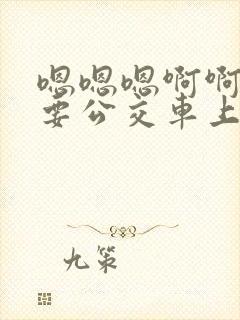 嗯嗯嗯啊啊
要公交车上
九策